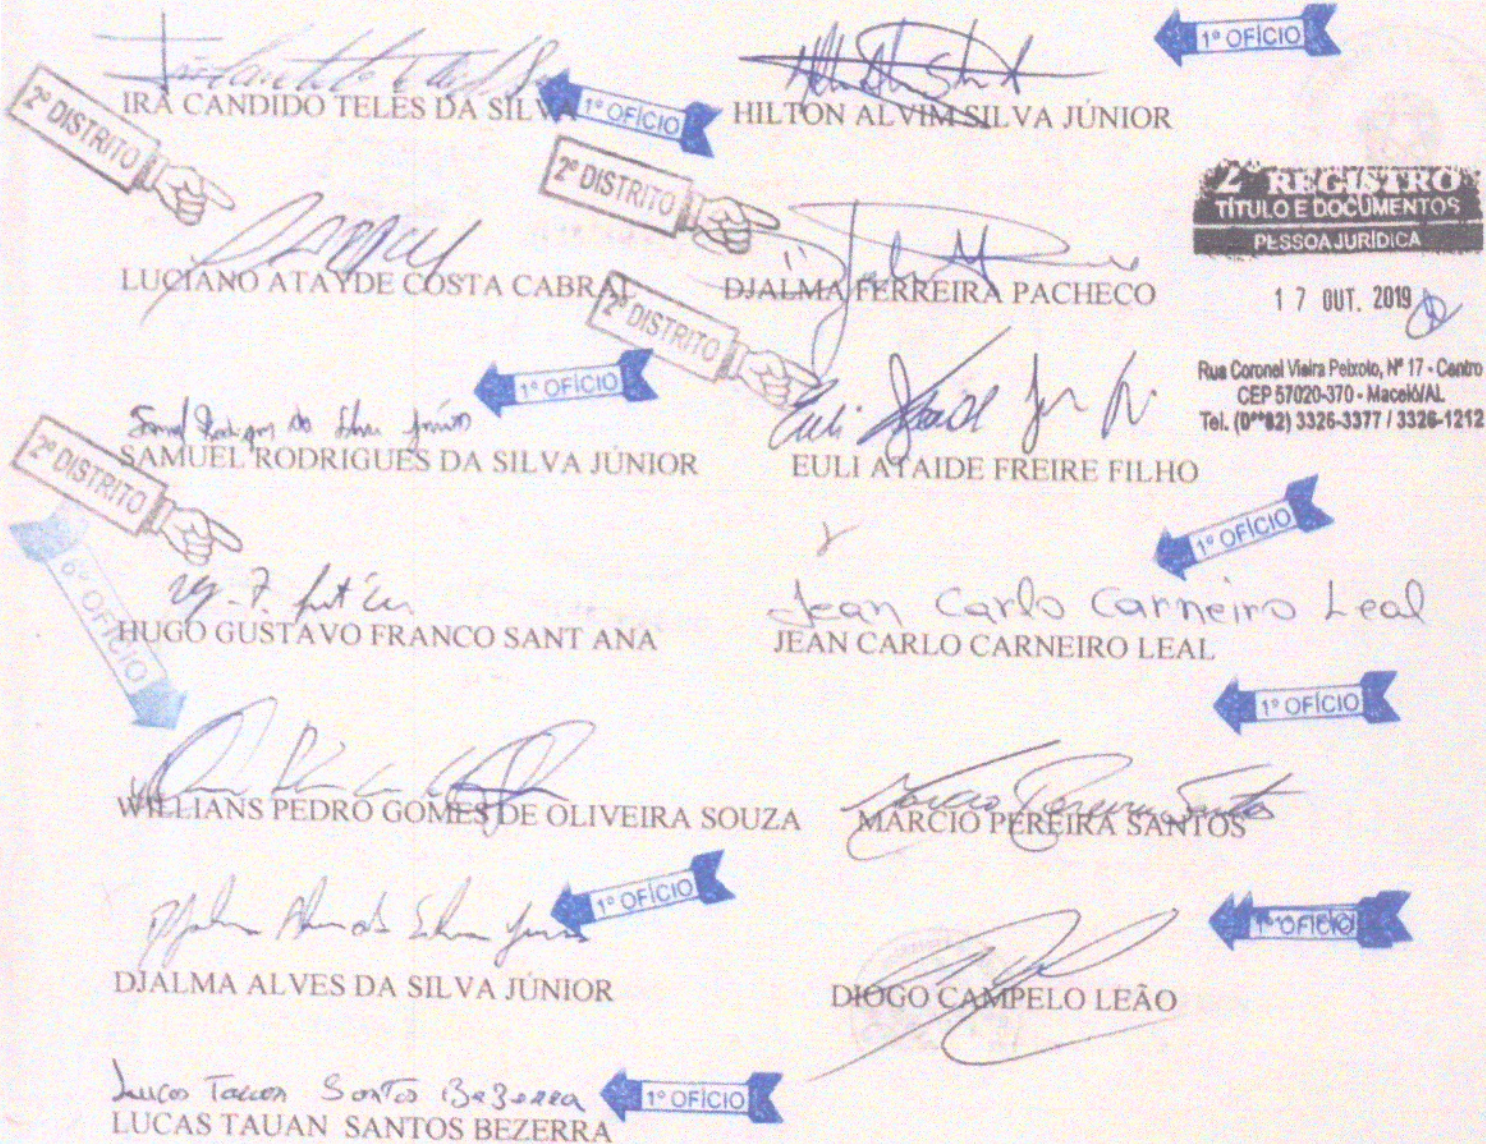 1º OFÍCIO
IRA CANDIDO TELES DA SILVA
1º OFÍCIO
HILTON ALVIM SILVA JÚNIOR
2º DISTRITO
2º DISTRITO
2º REGISTRO
TÍTULO E DOCUMENTOS
PESSOA JURÍDICA
LUCIANO ATAYDE COSTA CABRAL
DJALMA FERREIRA PACHECO
17 OUT. 2019
2º DISTRITO
Rua Coronel Vieira Peixoto, Nº 17 - Centro
CEP 57020-370 - Maceió/AL
Tel. (0**82) 3326-3377 / 3326-1212
1º OFÍCIO
Samuel Rodrigues da Silva Júnior
SAMUEL RODRIGUES DA SILVA JÚNIOR
Euli Ataide Freire Filho
EULI ATAIDE FREIRE FILHO
2º DISTRITO
1º OFÍCIO
6º OFÍCIO
HUGO GUSTAVO FRANCO SANT ANA
Jean Carlo Carneiro Leal
JEAN CARLO CARNEIRO LEAL
1º OFÍCIO
WILLIANS PEDRO GOMES DE OLIVEIRA SOUZA
Marcio Pereira Santos
MARCIO PEREIRA SANTOS
1º OFÍCIO
Djalma Alves da Silva Junior
DJALMA ALVES DA SILVA JÚNIOR
1º OFÍCIO
DIOGO CAMPELO LEÃO
Lucas Tauan Santos Bezerra
1º OFÍCIO
LUCAS TAUAN SANTOS BEZERRA